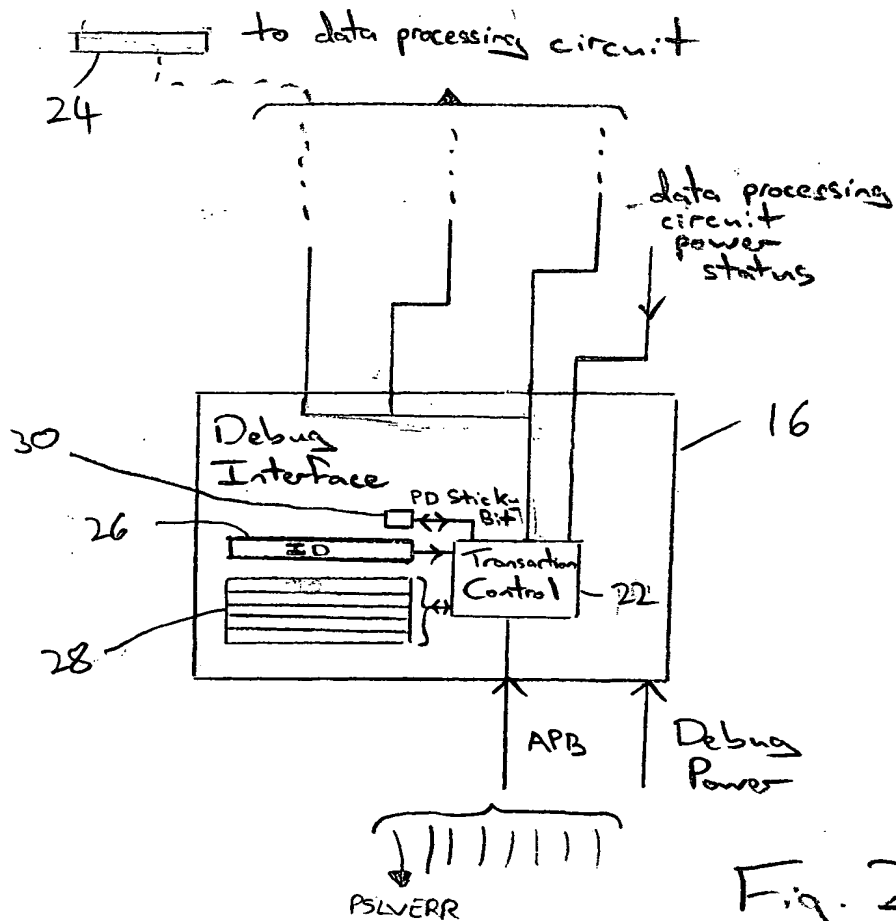 to data processing circuit
24
data processing
circuit
power
status
16
30
Debug
Interface
PD Sticky
Bit
26
ID
Transaction
Control
22
28
APB
Debug
Power
PSLVERR
Fig. 2